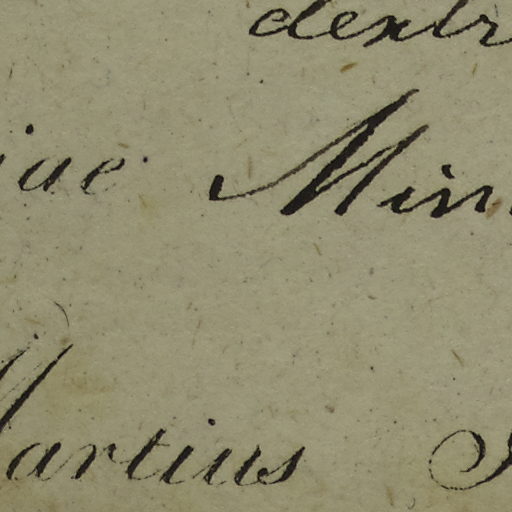 dextr
iae Min
Martius